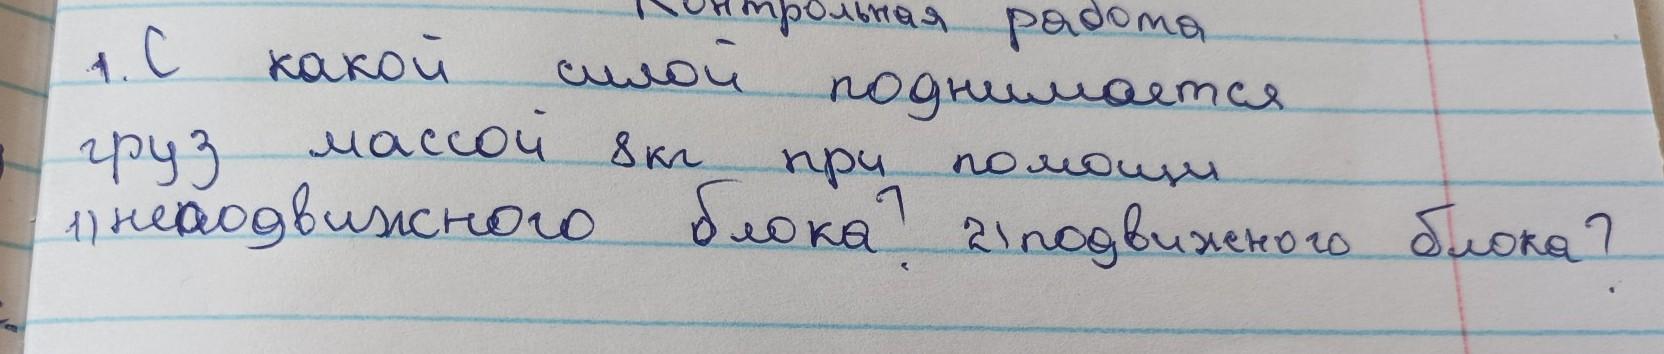 Контрольная работа
1. С какой силой поднимается
груз массой 8кг при помощи
1) неподвижного блока? 2) подвижного блока?